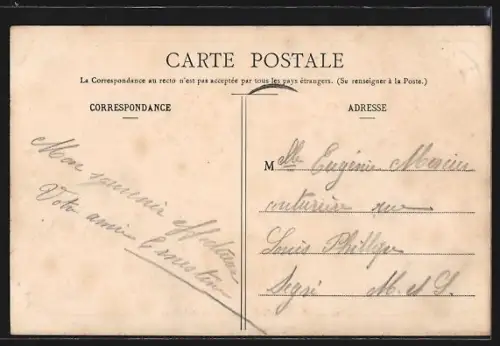 CARTE POSTALE
La Correspondance au recto n'est pas acceptée par tous les pays étrangers. (Se renseigner à la Poste.)
CORRESPONDANCE
Mon souvenir affectueux
Votre amie
ADRESSE
Melle Eugénie Mercier
couturière rue
Louis Phillipe
Segré M. et L.